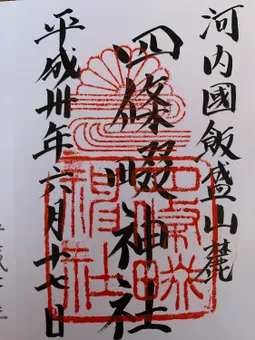 河内國飯盛山麓
四條畷神社
平成卅年六月十七日
四條畷神社